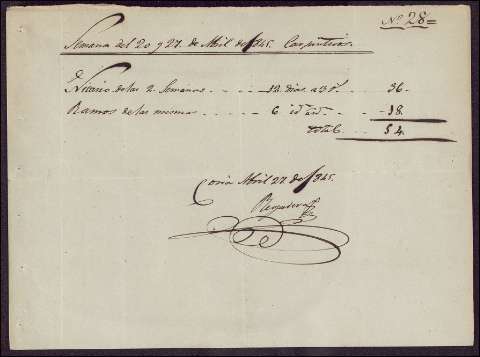 Nº 28=
Semana del 20 y 27 de Abril de 1845. Carpinteros.
de las 2 Semanas . . . . 12 dias a 3 r. . . . 36.
Ramos de las mismas . . . . . 6 id id . . . 18.
total . . . 54.
Coria Abril 27 de 1845.